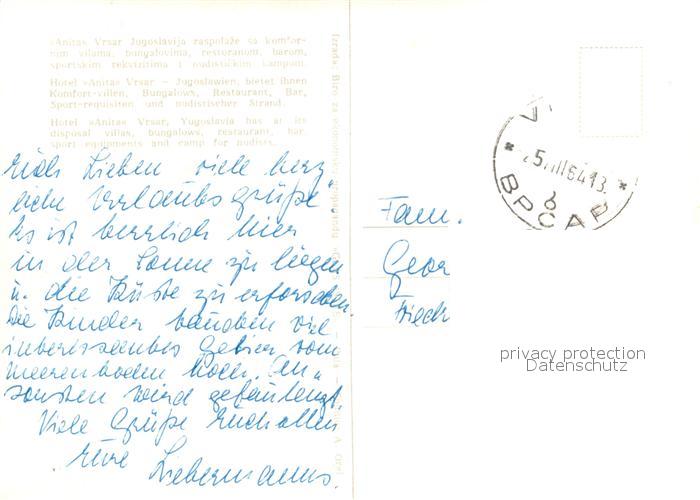 »Anita« Vrsar Jugoslavija raspolaže sa komfor-
nim vilama, bungalovima, restoranom, barom,
sportskim rekvizitima i nudističkim kampom.
Hotel »Anita« Vrsar — Jugoslawien, bietet Ihnen
Komfort-villen, Bungalows, Restaurant, Bar,
Sport-requisiten und nudistischer Strand.
Hotel »Anita« Vrsar, Yugoslavia has at its
disposal villas, bungalows, restaurant, bar,
sport equipments and camp for nudists.
Izrada: Biro za ekonomsku propagandu
Euch Lieben viele herz„
liche Urlaubsgrüße
Es ist herrlich hier
in der Sonne zu liegen
u. die Küste zu erforschen.
Die Kinder tauchen viel
interessantes Getier vom
Meeresboden hoch. An„
sonsten wird gefaulenzt.
Viele Grüße Euch allen
Eure Liebermanns.
Fam.
Geor
Friedr
ВРСАР
privacy protection
Datenschutz